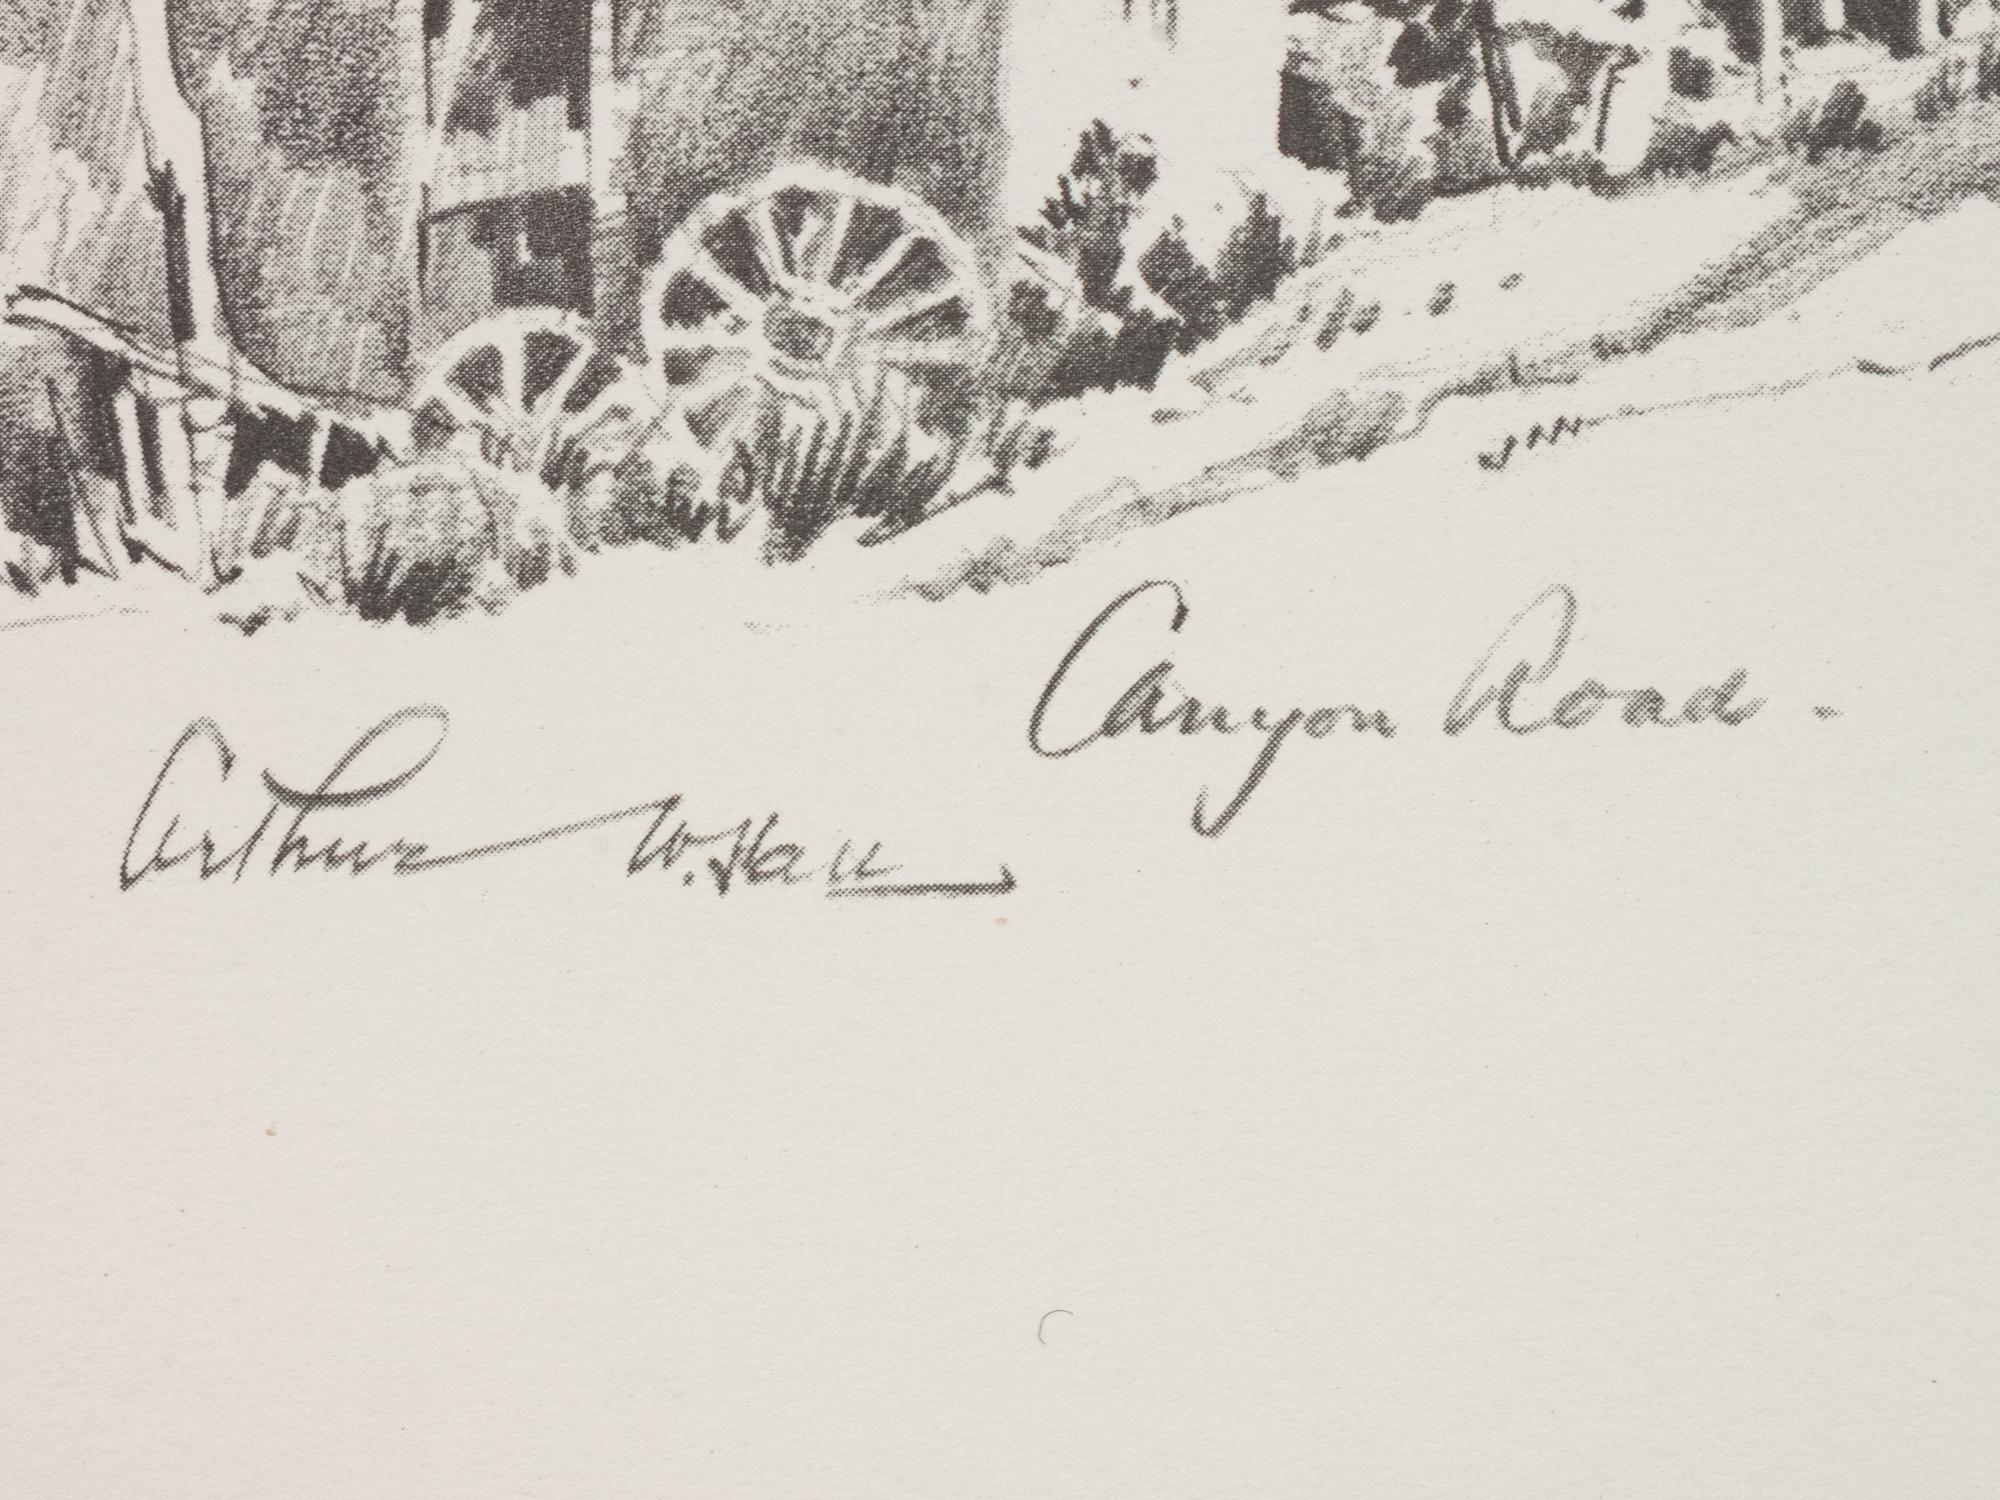 Canyon Road -
Arthur W. Hall